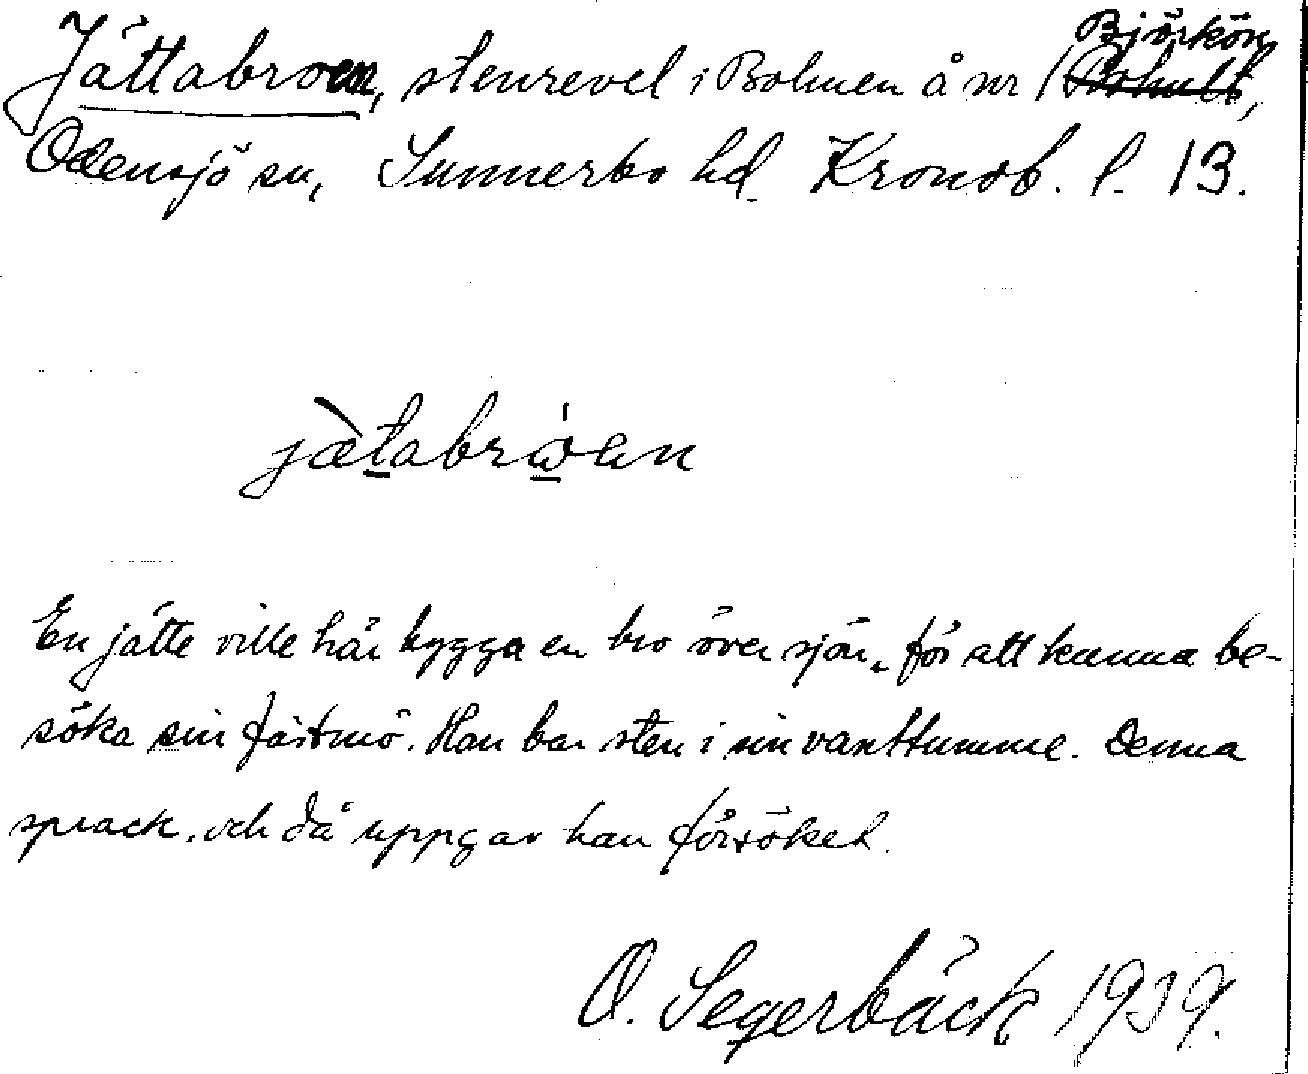 Björkön
Jättabroen, stenrevel i Bolmen å nr 1 Bohult,
Odensjö sn, Sunnerbo hd. Kronob. l. 13.
jætabrωen
En jätte ville här bygga en bro över sjön, för att kunna be-
söka sin fästmö. Han bar sten i sin vanttumme. Denna
sprack, och då uppgav han försöket.
O. Segerbäck 1939.